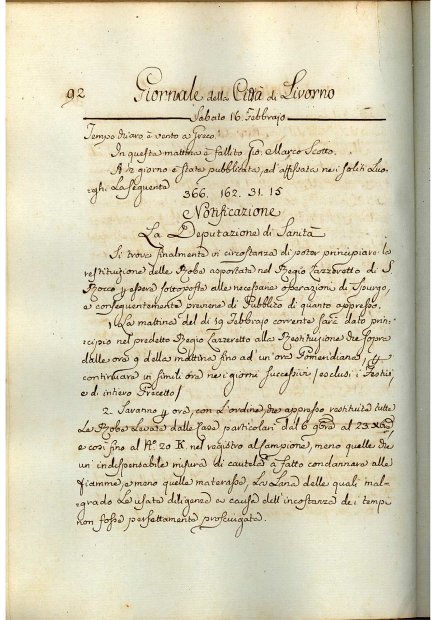 92 Giornale della Città di Livorno
Sabato 16. Febbrajo
Tempo chiaro, e vento a Greco.
In questa mattina è fallito Gio. Marco Scotto.
A 12 giorno è stata pubblicata, ad'affissata nei soliti Luo-
-ghi La seguente
366. 162. 31. 15
Notificazione
La Deputazione di Sanità
Si trova finalmente in circostanza di poter principiare la
restituzione delle Robe asportate nel Regio Lazzeretto di S.
Rocco p essere sottoposte alle necessarie operazioni di Spurgo,
e conseguentemente previene il Pubblico di quanto appresso.
1. La mattina del dì 19 Febbrajo corrente sarà dato prin-
cipio nel predetto Regio Lazzeretto alla Restituzione di Sopra
dalle ore 9 della mattina fino ad'un'ora Pomeridiana, p
continuare in simili ore nei giorni successivi / esclusi i Festivi
e di intiero Precetto /
2. Saranno p ora, con l'ordine, che appresso restituite tutte
Le Robe Levate dalle Case particolari dal 6 al 23
e così fino al N.° 20 K. nel registro al campione, meno quelle che
un'indispensabile misura di cautela à fatto condannare alle
fiamme, e meno quelle materasse, La Lana delle quali mal-
-grado Le usate diligenze a causa dell'incostanza dei tempi
non fosse perfettamente prosciugata.